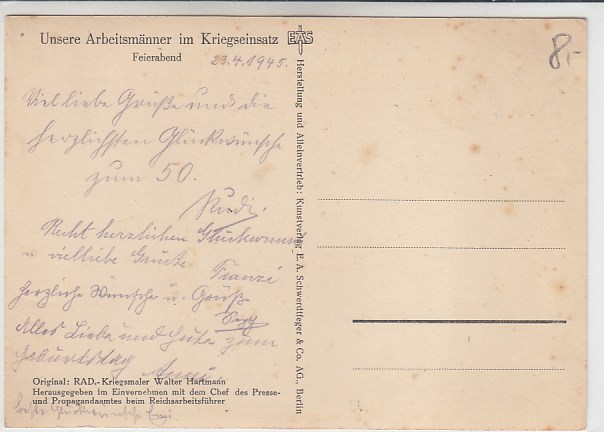 Unsere Arbeitsmänner im Kriegseinsatz
Feierabend
23.4.1945.
EAS
8,-
Viel liebe Grüße und die
herzlichsten Glückwünsche
zum 50.
Rudi.
Recht herzlichen Glückwunsch
u vielliebe Grüße
Franzi
Herzliche Wünsche u. Grüße
Alles Liebe und Gute zum
Geburtstag
Original: RAD.-Kriegsmaler Walter Hartmann
Herausgegeben im Einvernehmen mit dem Chef des Presse-
und Propagandaamtes beim Reichsarbeitsführer
beste Glückwünsche
Herstellung und Alleinvertrieb: Kunstverlag E. A. Schwerdtfeger & Co. AG., Berlin